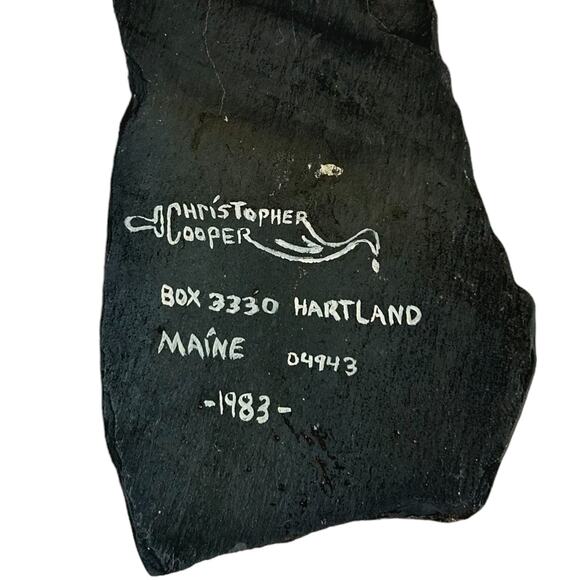 CHRISTOPHER
COOPER
BOX 3330 HARTLAND
MAINE 04943
-1983-